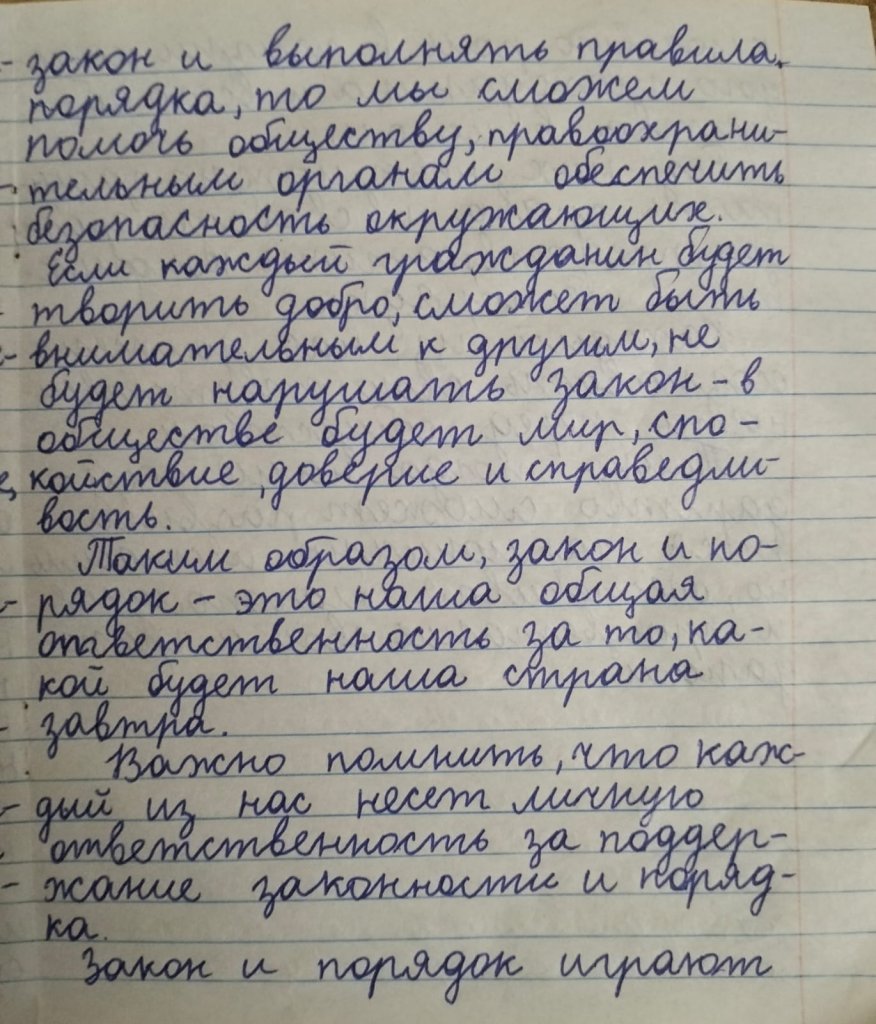 закон и выполнять правила
порядка, то мы сможем
помочь обществу, правоохрани-
тельным органам обеспечить
безопасность окружающих.
Если каждый гражданин будет
творить добро, сможет быть
внимательным к другим, не
будет нарушать закон - в
обществе будет мир, спо-
койствие, доверие и справедли-
вость.
Таким образом, закон и по-
рядок - это наша общая
ответственность за то, ка-
кой будет наша страна
завтра.
Важно помнить, что каж-
дый из нас несет личную
ответственность за поддер-
жание законности и поряд-
ка.
Закон и порядок играют